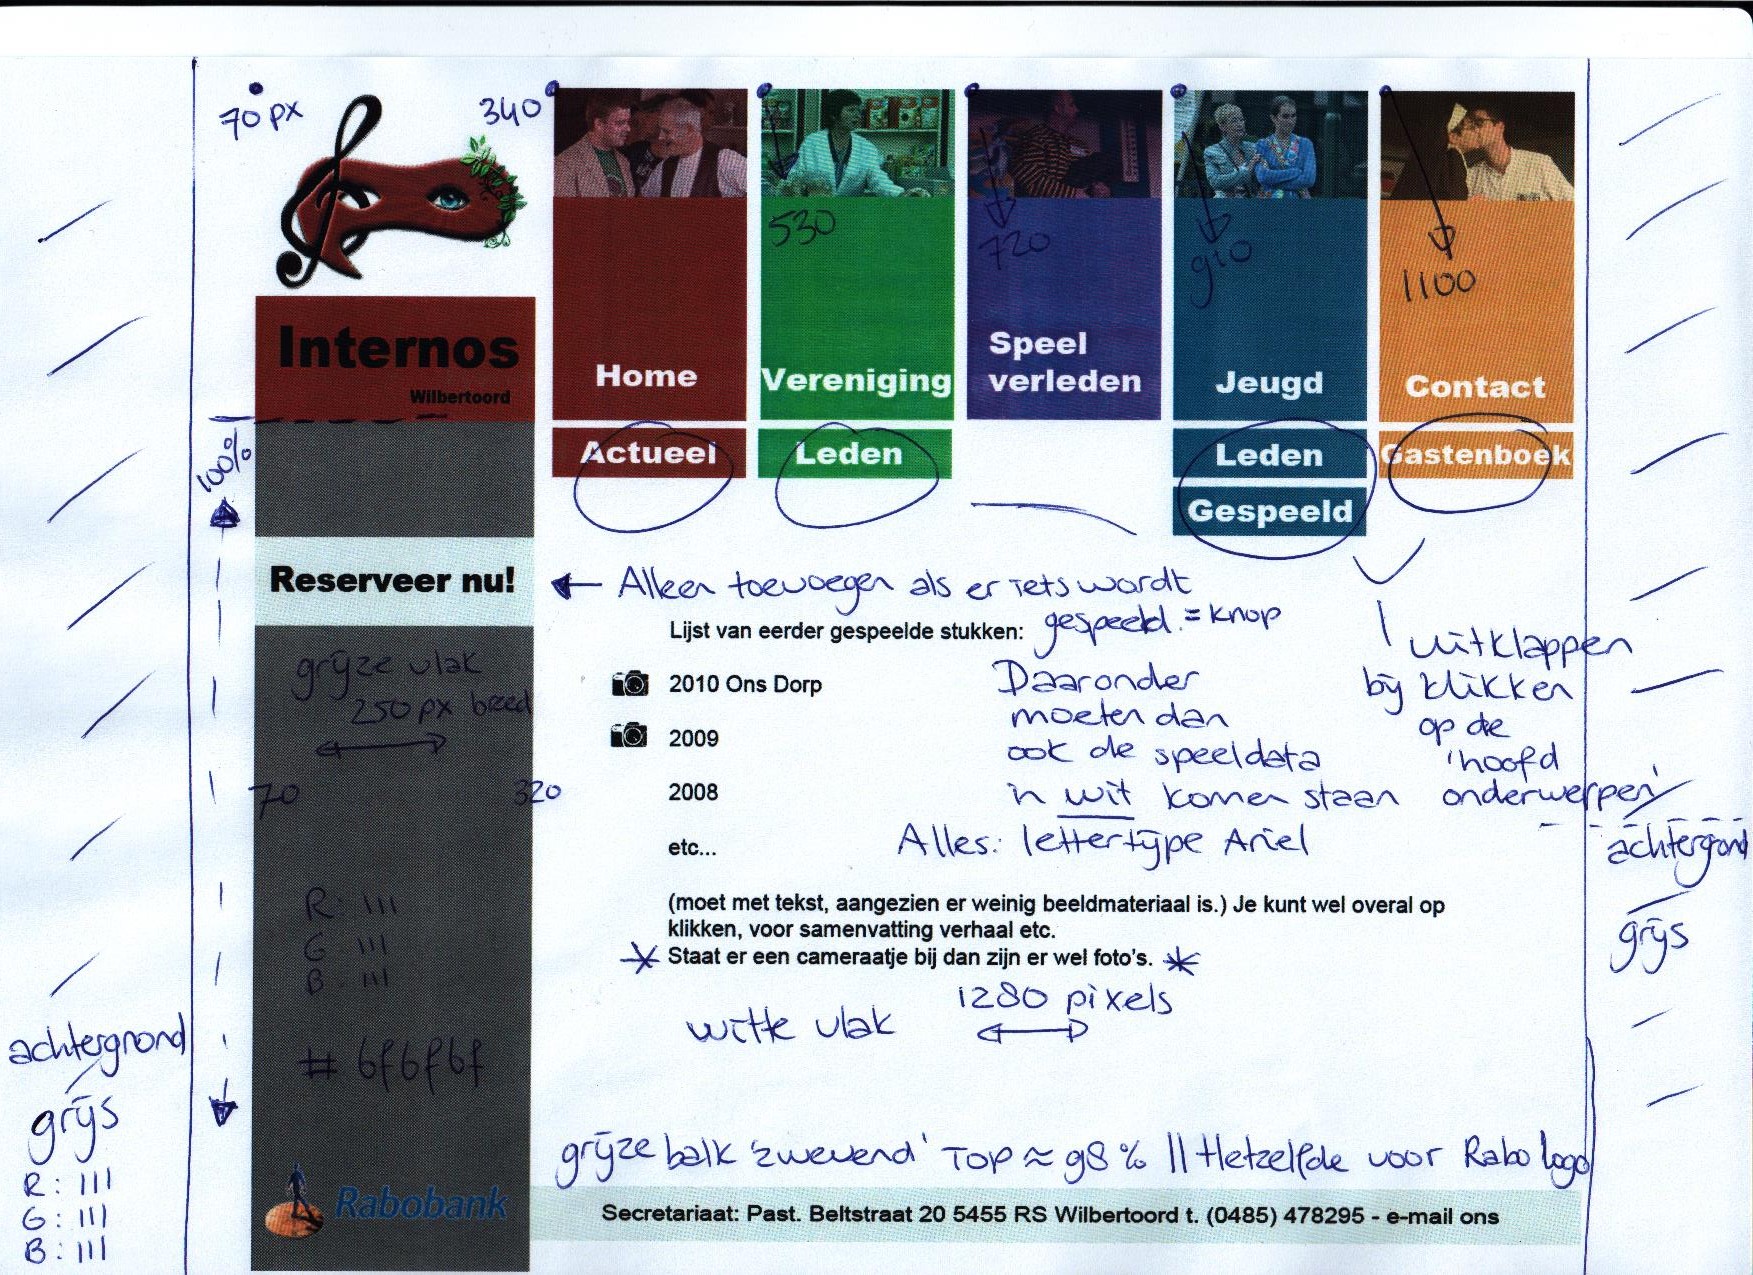 70 px
340
530
720
910
1100
Internos
Wilbertoord
Home
Vereniging
Speel
verleden
Jeugd
Contact
Actueel
Leden
Leden
Gastenboek
Gespeeld
100%
Reserveer nu!
Alleen toevoegen als er iets wordt
gespeeld. = knop
Lijst van eerder gespeelde stukken:
2010 Ons Dorp
2009
2008
etc...
Daaronder
moeten dan
ook de speeldata
in wit komen staan
uitklappen
bij klikken
op de
'hoofd
onderwerpen'
grijze vlak
250 px breed
70
320
Alles: lettertype Ariel
achtergrond
grijs
R: 111
G: 111
B: 111
# 6f6f6f
(moet met tekst, aangezien er weinig beeldmateriaal is.) Je kunt wel overal op
klikken, voor samenvatting verhaal etc.
Staat er een cameraatje bij dan zijn er wel foto's.
witte vlak
1280 pixels
achtergrond
grijs
R: 111
G: 111
B: 111
grijze balk 'zwevend' Top ≈ 98 % || Hetzelfde voor Rabo logo
Rabobank
Secretariaat: Past. Beltstraat 20 5455 RS Wilbertoord t. (0485) 478295 - e-mail ons